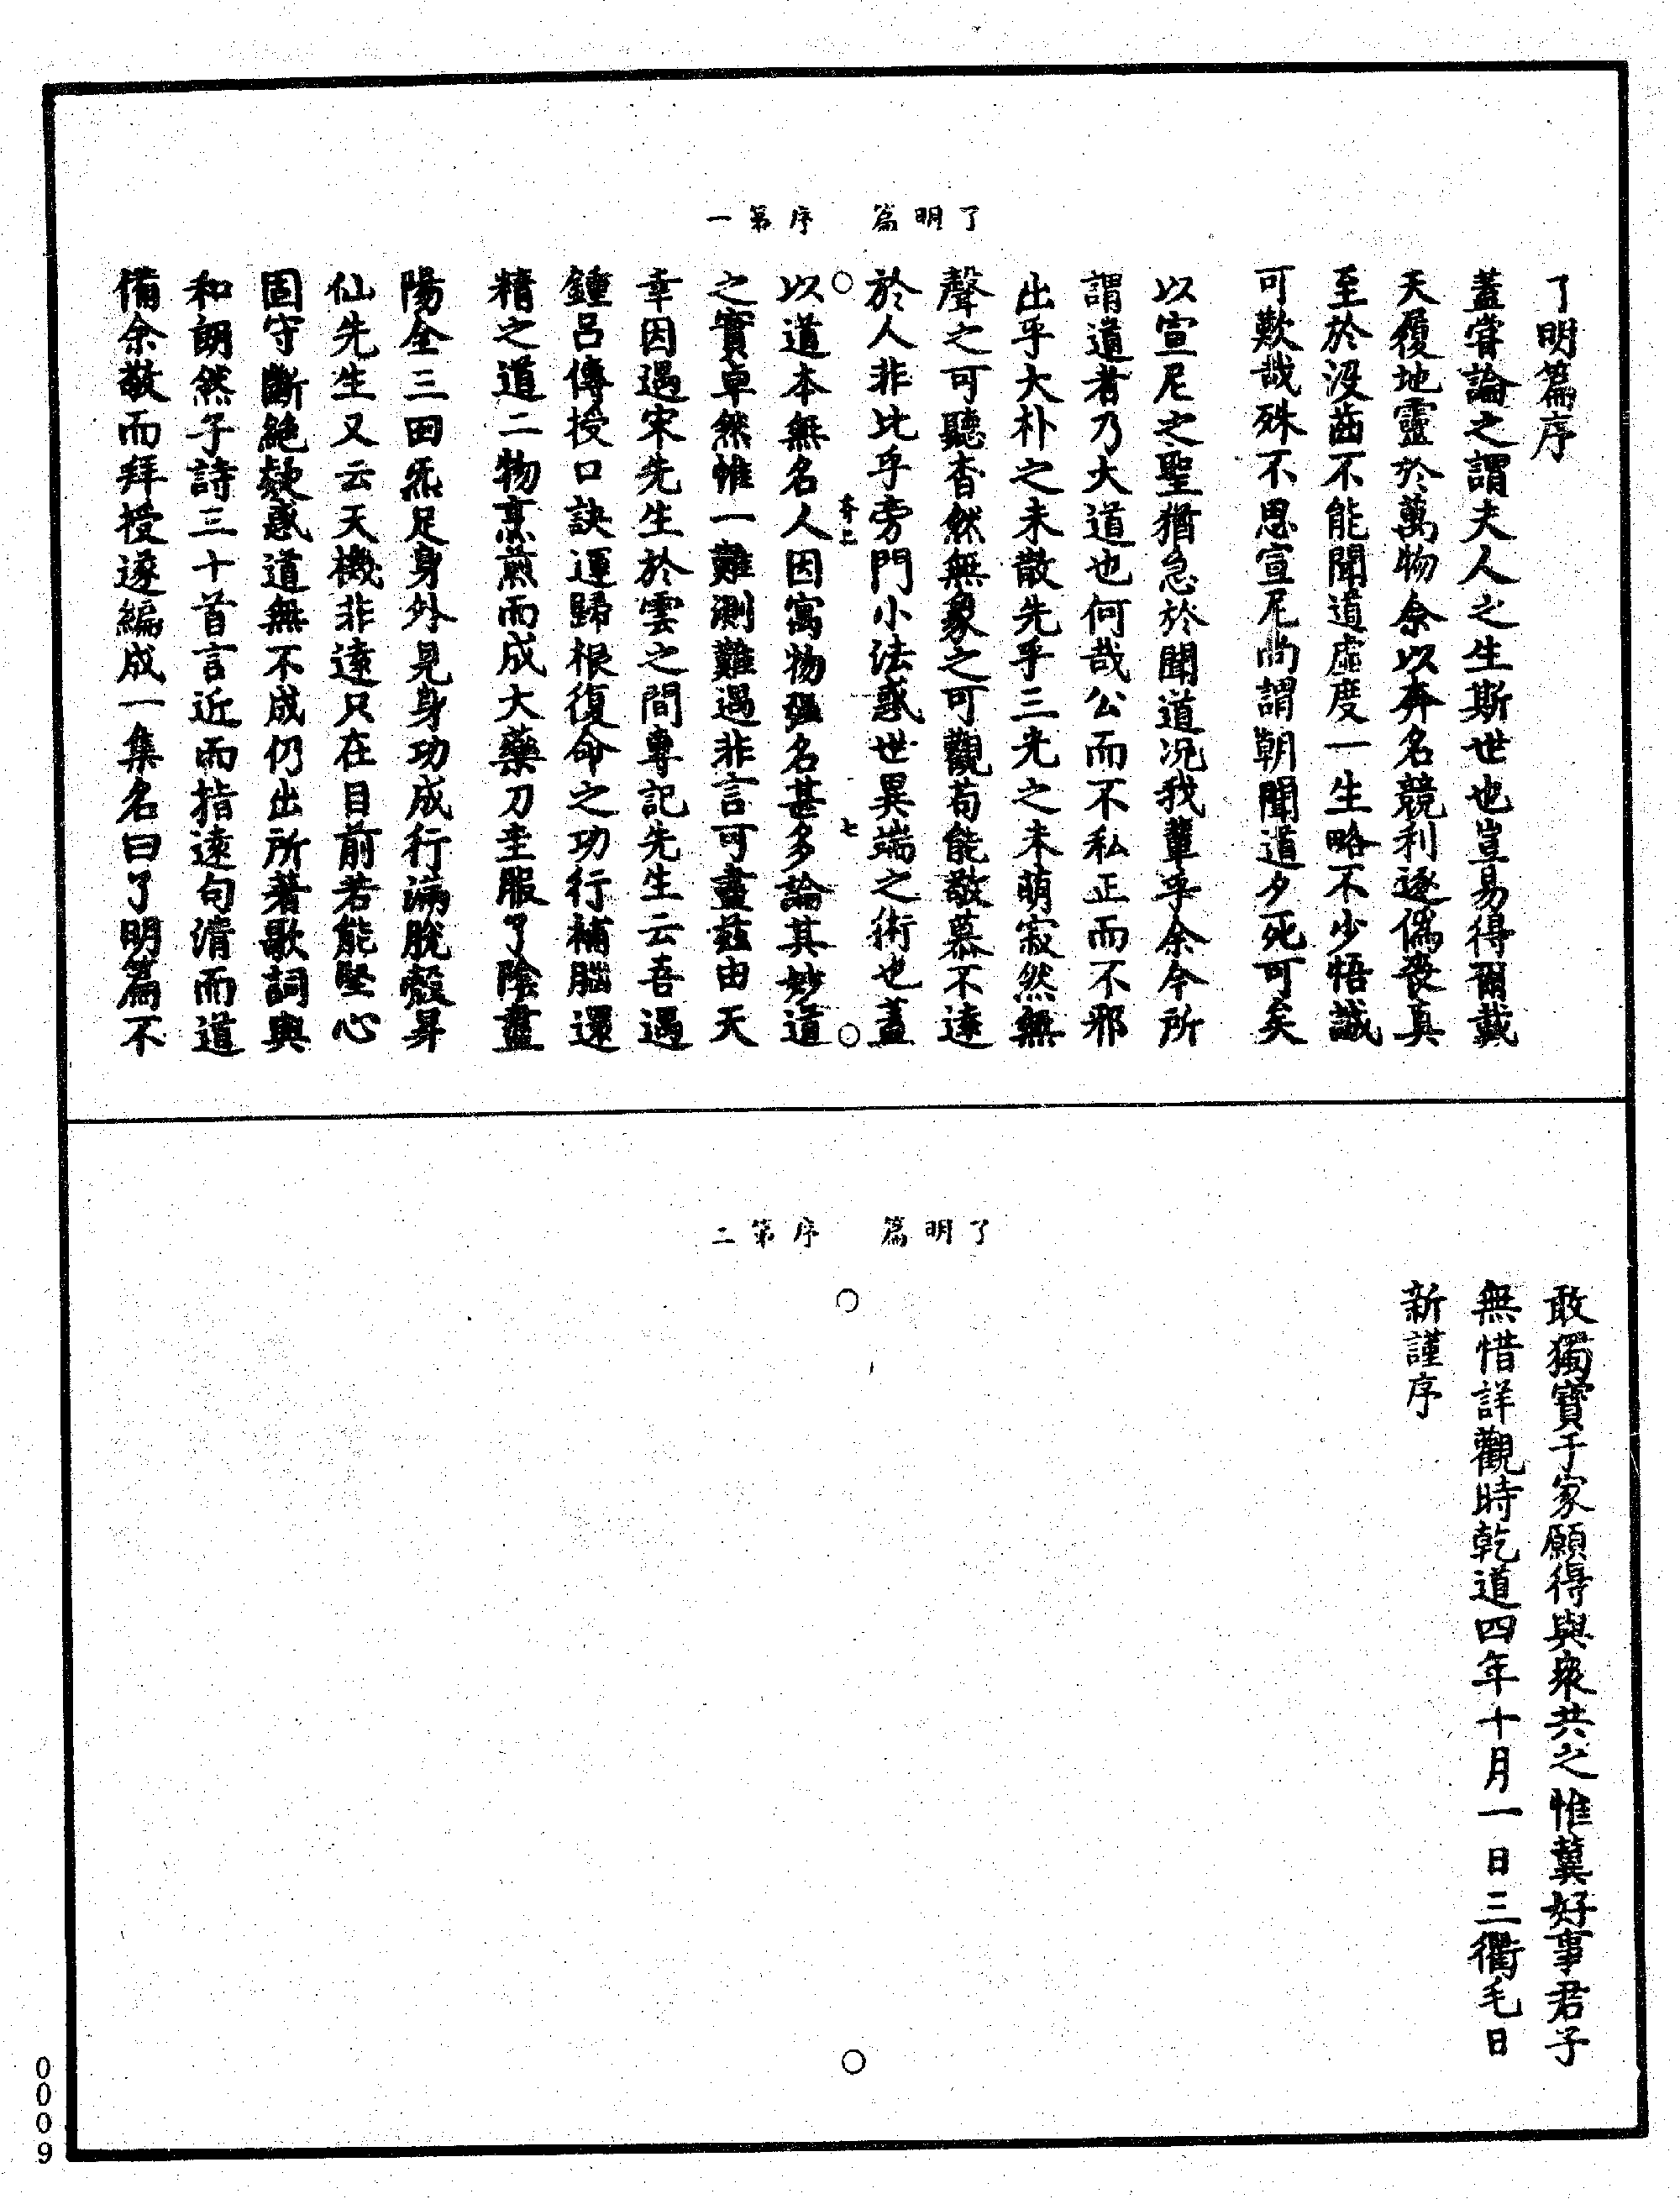 了明篇　序第一
了明篇序
蓋嘗論之謂夫人之生斯世也豈易得爾戴
天履地靈於萬物余以奔名競利逐僞喪真
至於沒齒不能聞道虛度一生略不少悟誠
可歎哉殊不思宣尼尚謂朝聞道夕死可矣
以宣尼之聖猶急於聞道况我輩乎余今所
謂道者乃大道也何哉公而不私正而不邪
出乎大朴之未散先乎三光之未萌寂然無
聲之可聽杳然無象之可觀苟能敬慕不遠
於人非比乎旁門小法惑世異端之術也蓋
以道本無名人因寓物强名甚多論其妙道
之實卓然惟一難測難遇非言可盡兹由天
幸因遇宋先生於雲之間專記先生云吾遇
鍾呂傳授口訣運歸根復命之功行補腦還
精之道二物烹煎而成大藥刀圭服了陰盡
陽全三田炁足身外見身功成行滿脫殼昇
仙先生又云天機非遠只在目前若能堅心
固守斷絶疑惑道無不成仍出所著歌詞與
和朗然子詩三十首言近而指遠句清而道
備余敬而拜授遂編成一集名曰了明篇不
了明篇　序第二
敢獨寶于家願得與衆共之惟冀好事君子
無惜詳觀時乾道四年十月一日三衢毛日
新謹序
00009